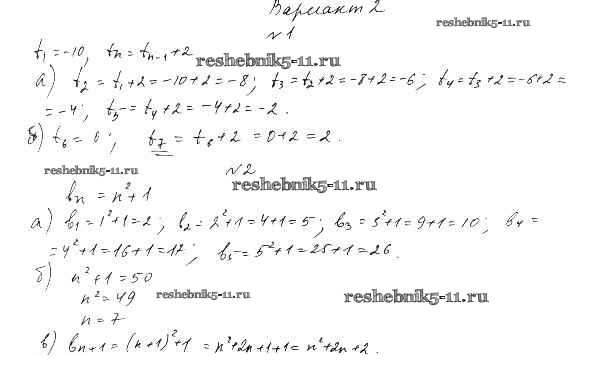 Вариант 2
reshebnik5-11.ru
№1
t₁=-10, tn=tn-1+2
reshebnik5-11.ru
а) t₂=t₁+2=-10+2=-8; t₃=t₂+2=-8+2=-6; t₄=t₃+2=-6+2=
=-4; t₅=t₄+2=-4+2=-2.
б) t₆=0; t₇=t₆+2=0+2=2.
reshebnik5-11.ru
№2
reshebnik5-11.ru
bn=n²+1
а) b₁=1²+1=2; b₂=2²+1=4+1=5; b₃=3²+1=9+1=10; b₄=
=4²+1=16+1=17; b₅=5²+1=25+1=26.
б) n²+1=50
n²=49
reshebnik5-11.ru
reshebnik5-11.ru
n=7
в) bn+1=(n+1)²+1=n²+2n+1+1=n²+2n+2.